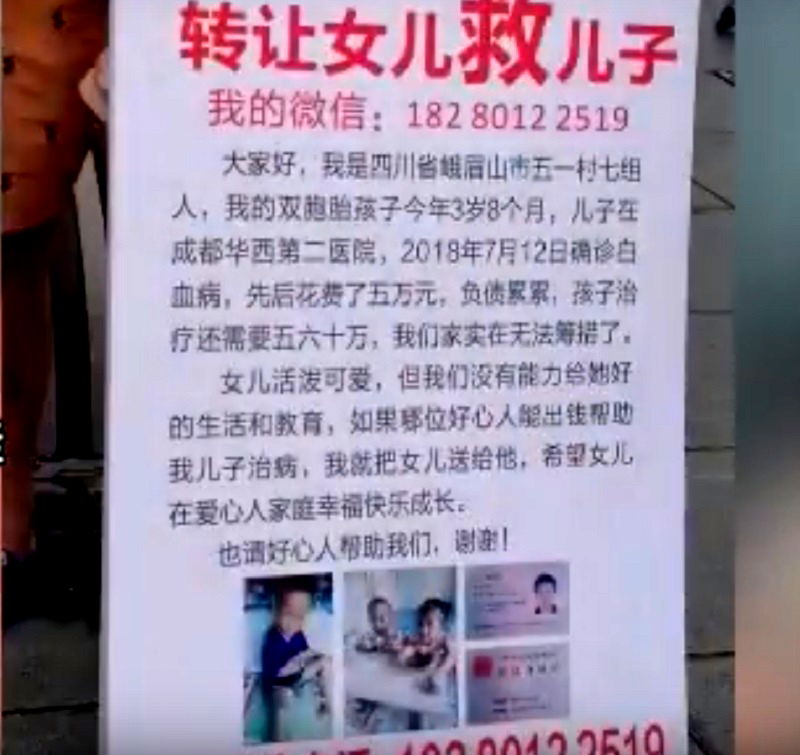 转让女儿救儿子
我的微信：182 8012 2519
大家好，我是四川省峨眉山市五一村七组
人，我的双胞胎孩子今年3岁8个月，儿子在
成都华西第二医院，2018年7月12日确诊白
血病，先后花费了五万元，负债累累，孩子治
疗还需要五六十万，我们家实在无法筹措了。
女儿活泼可爱，但我们没有能力给她好
的生活和教育，如果哪位好心人能出钱帮助
我儿子治病，我就把女儿送给他，希望女儿
在爱心人家庭幸福快乐成长。
也请好心人帮助我们，谢谢！
182 8012 2519